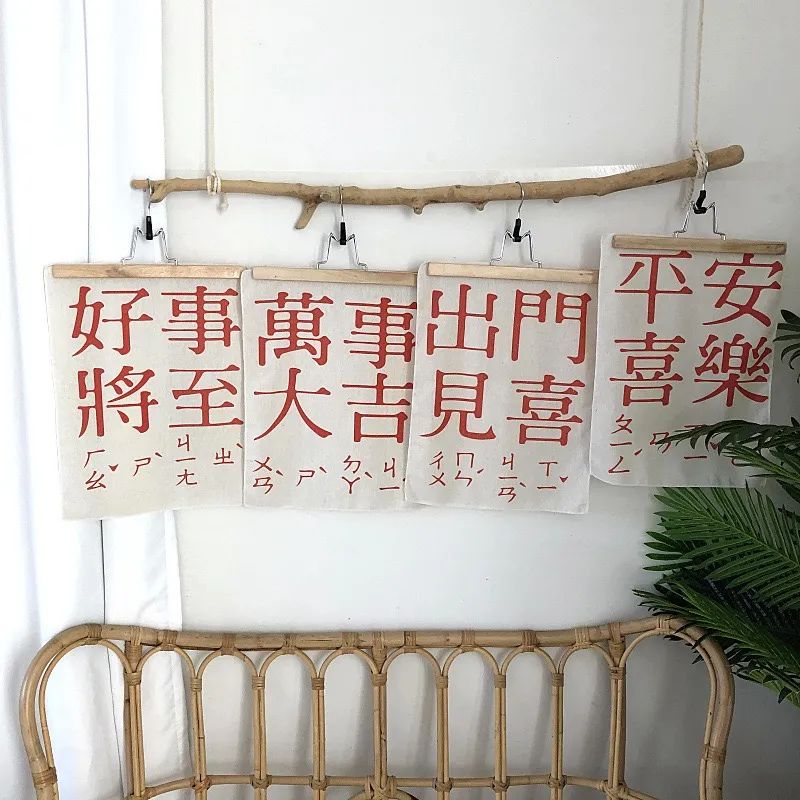 好事
將至
ㄏㄠˇ ㄕˋ ㄐㄧㄤ ㄓˋ
萬事
大吉
ㄨㄢˋ ㄕˋ ㄉㄚˋ ㄐㄧ
出門
見喜
ㄔㄨ ㄇㄣˊ ㄐㄧㄢˋ ㄒㄧˇ
平安
喜樂
ㄆㄧㄥˊ ㄢ